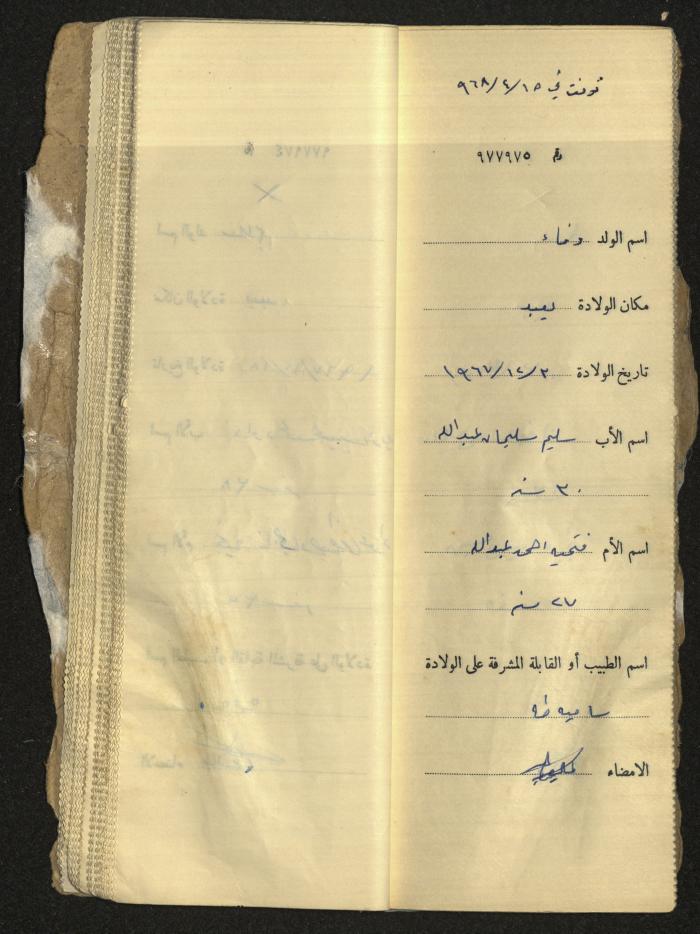 توفت في ١٥/٤/٩٦٨
رقم ٩٧٧٩٧٥
اسم الولد وفاء
مكان الولادة يعبد
تاريخ الولادة ٢/١٢/١٩٦٧
اسم الأب سليم سليمان عبدالله
٣٠ سنه
اسم الأم فتحيه احمد عبدالله
٢٧ سنه
اسم الطبيب أو القابلة المشرفة على الولادة
ساميه طه
الامضاء